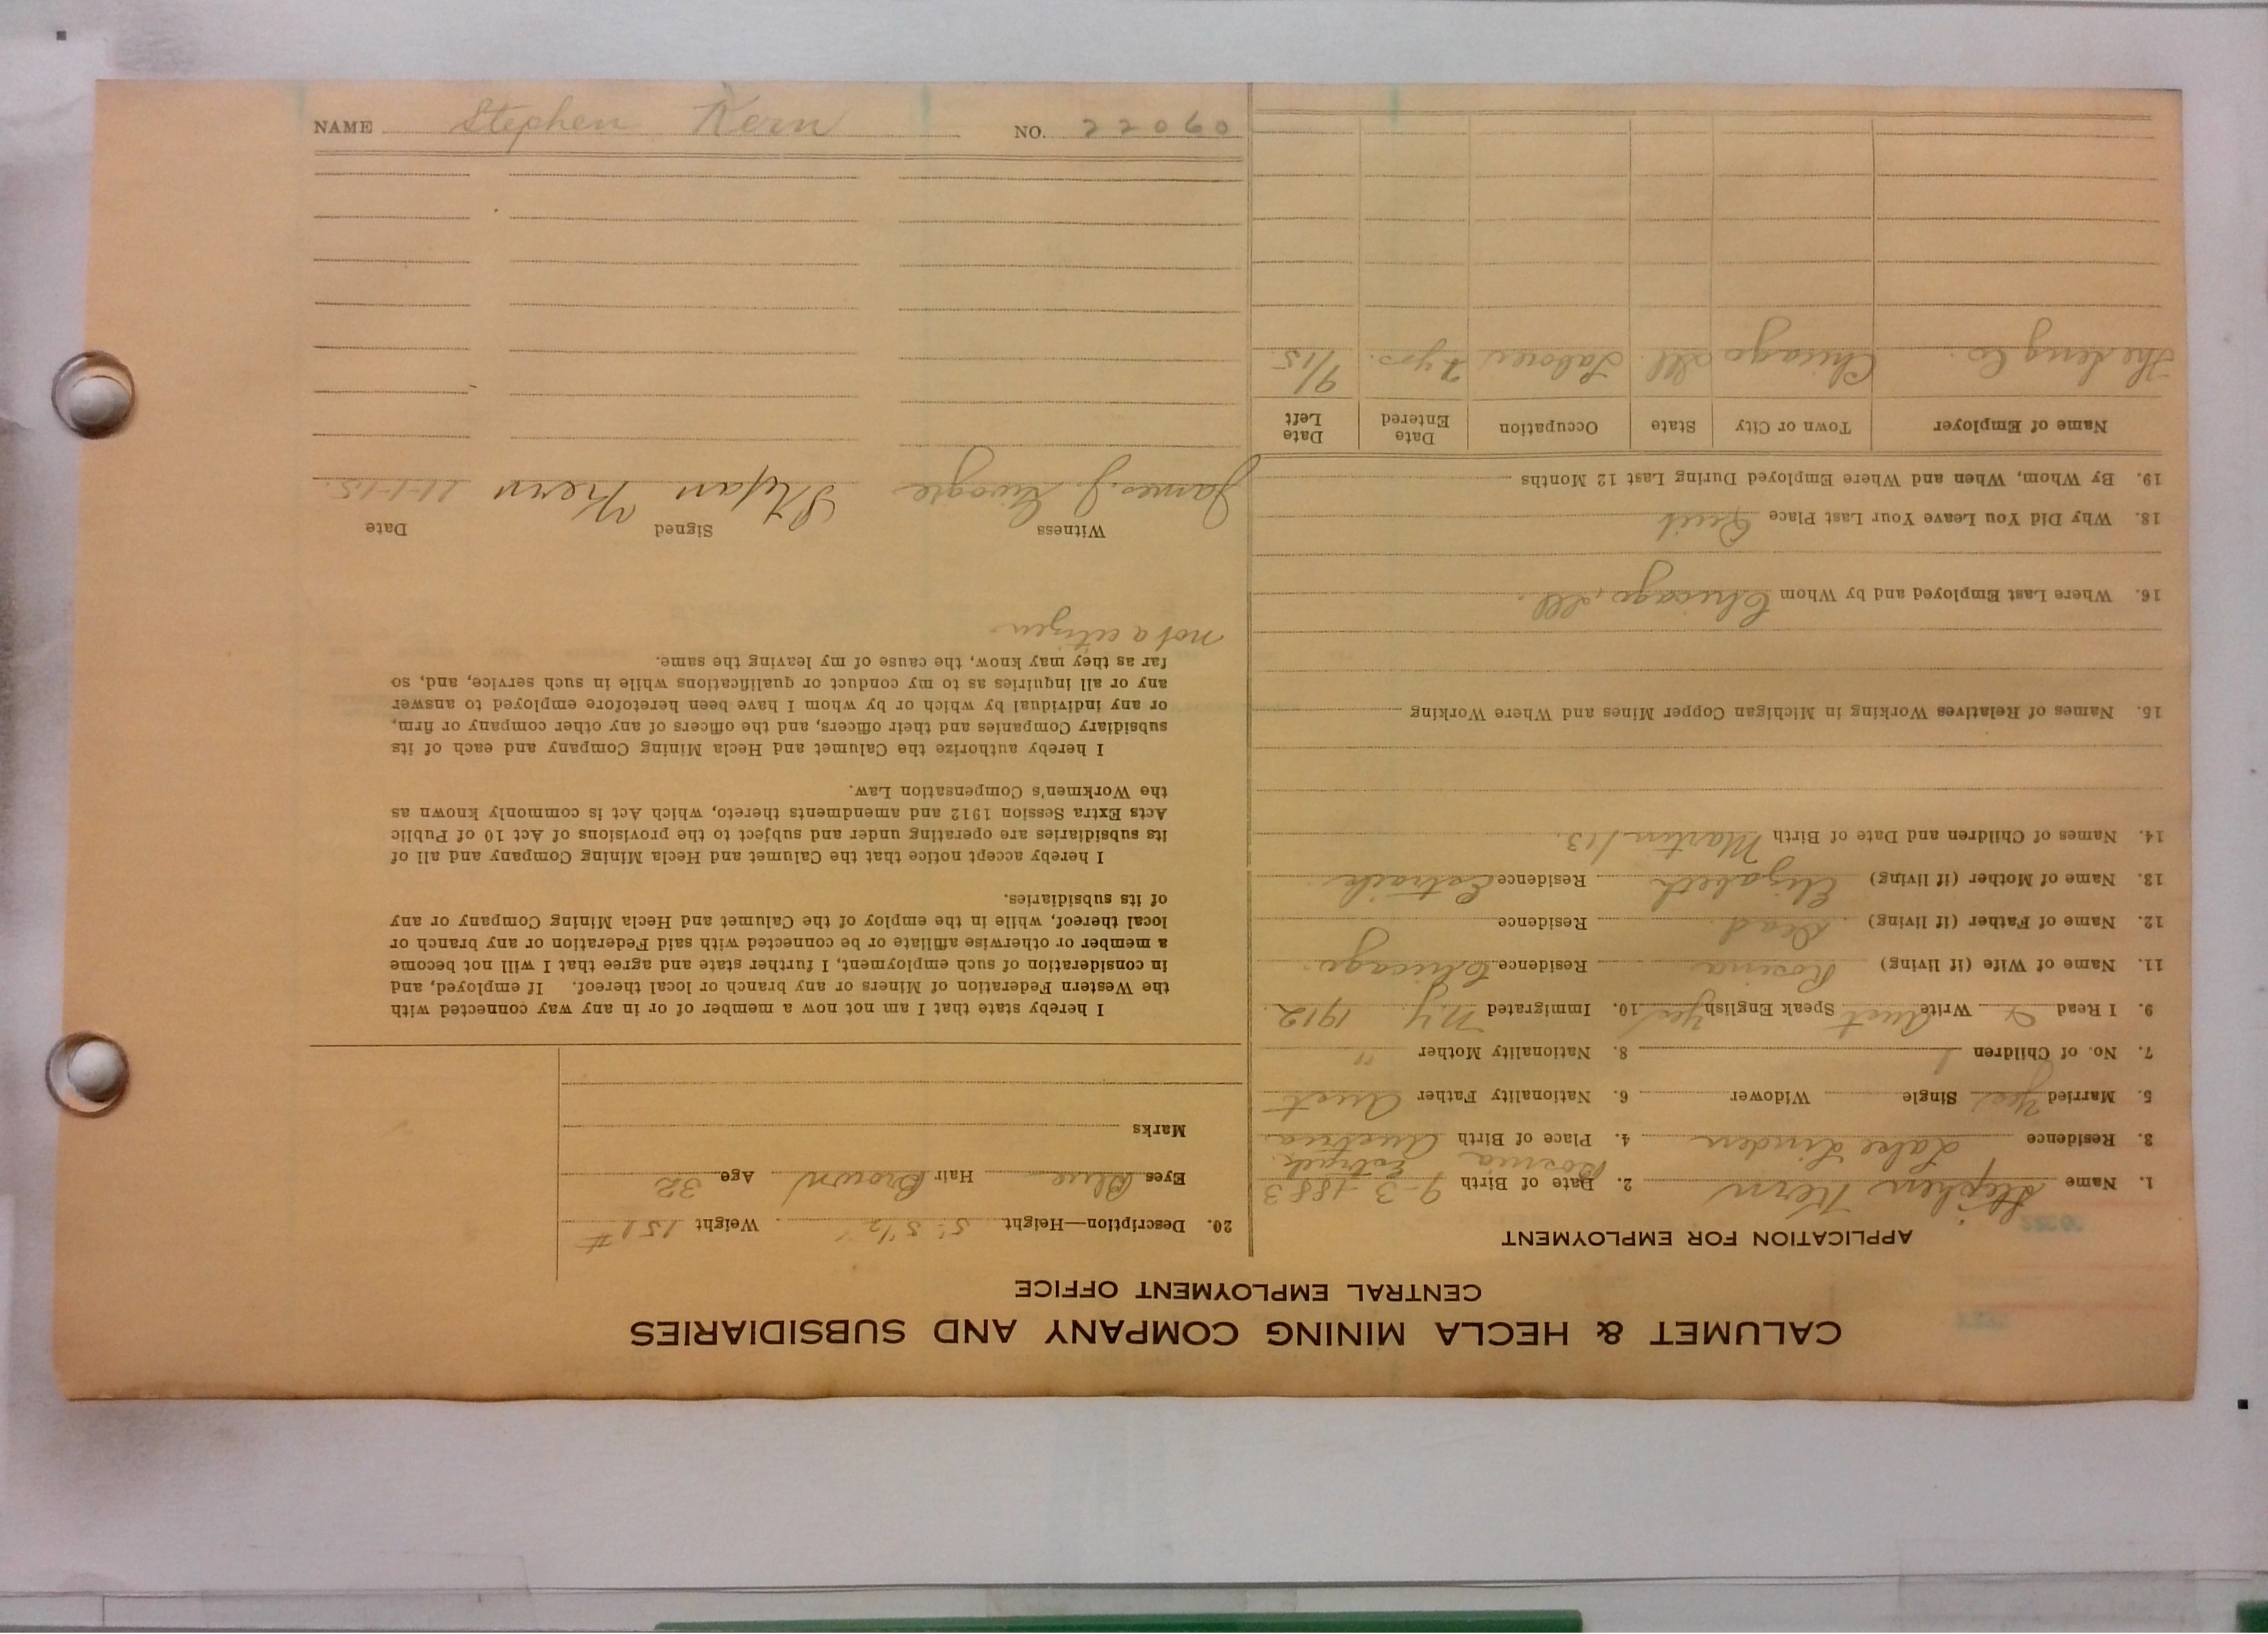 CALUMET & HECLA MINING COMPANY AND SUBSIDIARIES
CENTRAL EMPLOYMENT OFFICE
APPLICATION FOR EMPLOYMENT
1. Name Stephen Kern 2. Date of Birth 9-3-1883
Bosnia
3. Residence Lake Linden 4. Place of Birth Austria
5. Married Yes Single Widower 6. Nationality Father Aust
7. No. of Children 1 8. Nationality Mother "
9. I Read Write Aust Speak English Yes 10. Immigrated N.Y. 1912
11. Name of Wife (if living) Rosina Residence Chicago
12. Name of Father (if living) Dead Residence
13. Name of Mother (if living) Elizabeth Residence
14. Names of Children and Date of Birth Martin / 13.
15. Names of Relatives Working in Michigan Copper Mines and Where Working
16. Where Last Employed and by Whom Chicago, Ill.
18. Why Did You Leave Your Last Place Quit
19. By Whom, When and Where Employed During Last 12 Months
Name of Employer Town or City State Occupation Date Entered Date Left
The Co. Chicago Ill Laborer yrs. 9/15
20. Description—Height 5' 5 1/2" Weight 151 #
Eyes Blue Hair Brown Age 32
Marks
I hereby state that I am not now a member of or in any way connected with
the Western Federation of Miners or any branch or local thereof. If employed, and
in consideration of such employment, I further state and agree that I will not become
a member or otherwise affiliate or be connected with said Federation or any branch or
local thereof, while in the employ of the Calumet and Hecla Mining Company or any
of its subsidiaries.
I hereby accept notice that the Calumet and Hecla Mining Company and all of
its subsidiaries are operating under and subject to the provisions of Act 10 of Public
Acts Extra Session 1912 and amendments thereto, which Act is commonly known as
the Workmen's Compensation Law.
I hereby authorize the Calumet and Hecla Mining Company and each of its
subsidiary Companies and their officers, and the officers of any other company or firm,
or any individual by which or by whom I have been heretofore employed to answer
any or all inquiries as to my conduct or qualifications while in such service, and, so
far as they may know, the cause of my leaving the same.
not a citizen
Witness Signed Date
James J. Stefan Kern 11-1-15.
NAME Stephen Kern NO. 22060